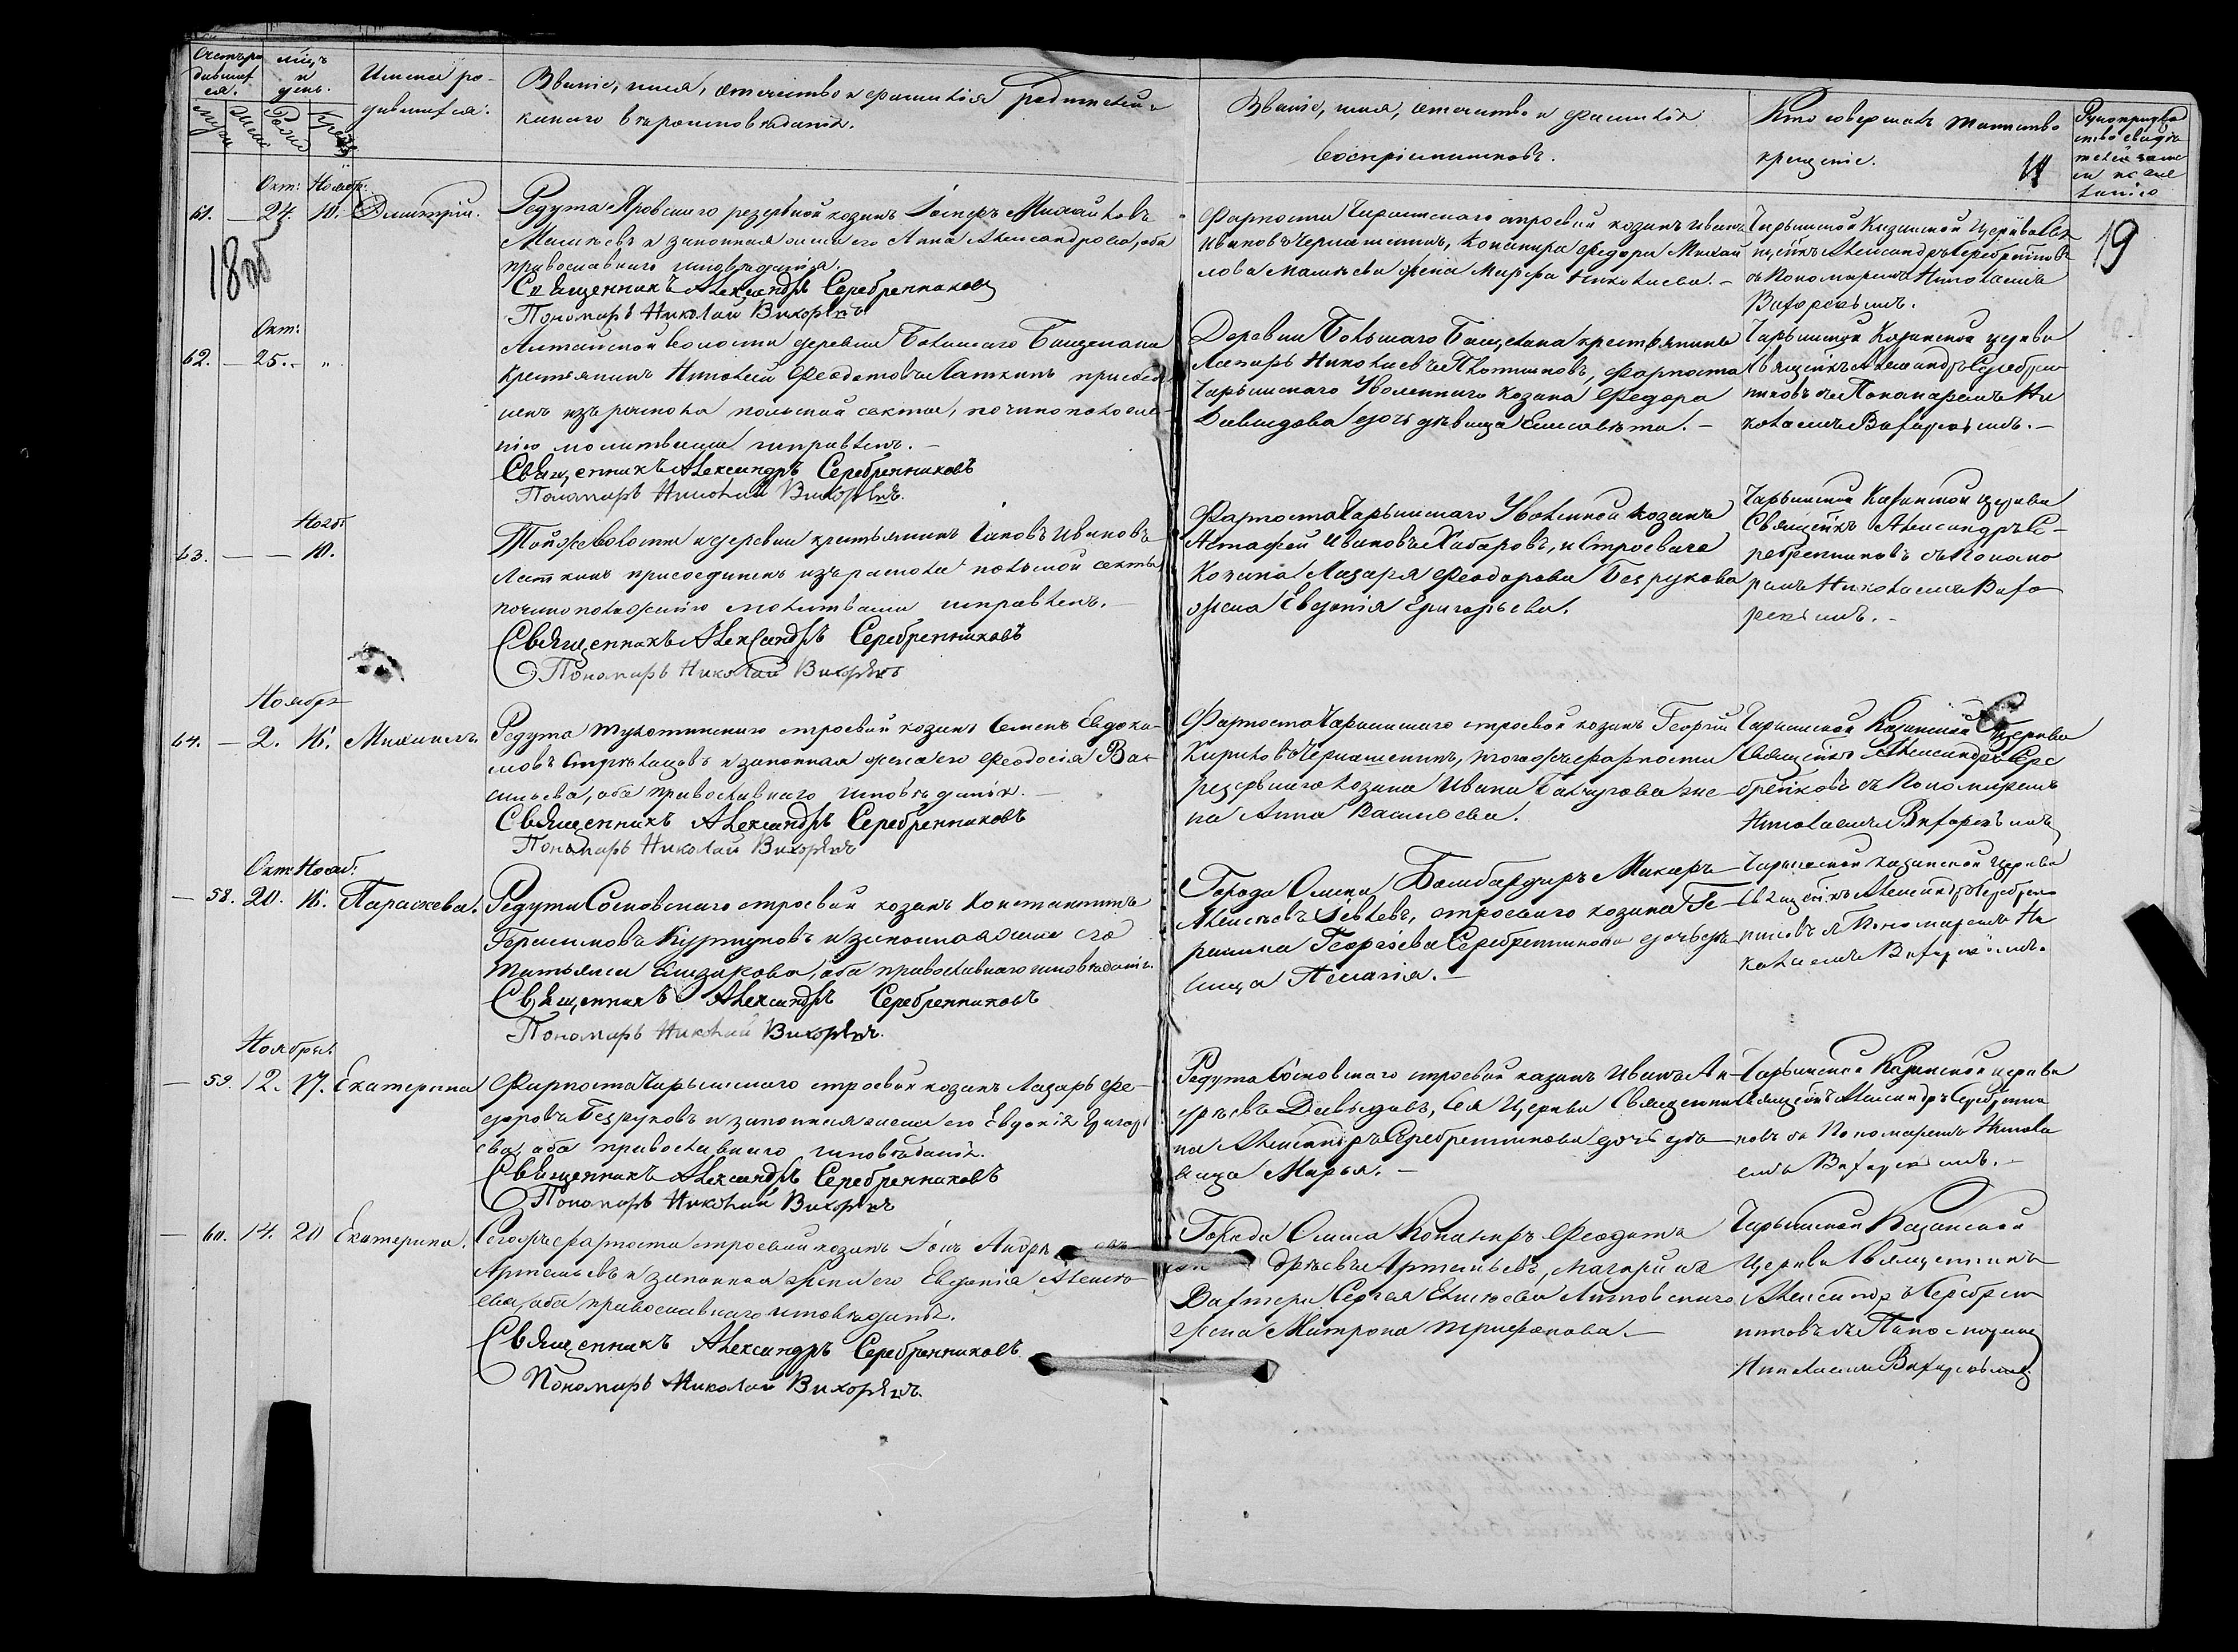 Счетъ ро
дивших
ся.
мѣц.
и
день.
Имена ро-
дившихся.
Званіе, имя, отечество и фамилія родителей и
какого вѣроисповѣданія.
Званіе, имя, отечество и фамилія
воспріемниковъ.
Кто совершалъ таинство
крещенія.
Рукоприклад
ство свидѣ
телей запи
си по же
ланію
19
18 об
Окт: Ноябр:
61. — 24. 10. Димитрій.
Редута Яровскаго резервной козакъ Іосифъ Михайловъ
и законная жена его Анна Александрова, оба
православнаго исповѣданія.
Священникъ Александръ Серебренниковъ
Пономарь Николай Вихоревъ
Форпоста Чарышскаго строевой козакъ Иванъ
Ивановъ Чернашенинъ, Канонира Федора Михай
лова жена Марфа Николаева. —
Чарышской Казанской Церкви Свя
щеникъ Александръ Серебрениковъ
съ Пономаремъ Николаемъ
Вихоревымъ.
Окт:
62. — 25. — „
Алтайской волости деревни Большаго Бащелака
Крестьянинъ Николай Феодотовъ Латкинъ присоеди
ненъ изъ раскола польской секты, по чиноположе-
нію молитвами исправленъ. —
Священникъ Александръ Серебренниковъ
Пономарь Николай Вихоревъ.
Деревни Большаго Бащелака крестьянинъ
Лазарь Николаевъ Плотниковъ, форпоста
Чарышскаго Уволеннаго Козака Федора
Давыдова дочь дѣвица Елисавета. —
Чарышской Казанской церкви
Священикъ Александръ Серебрен
никовъ съ Пономаремъ Ни
колаемъ Вихоревымъ. —
Нояб:
63. — — 10.
Той же волости и деревни крестьянинъ Іаковъ Ивановъ
Латкинъ присоединенъ изъ раскола польской секты
по чиноположенію молитвами исправленъ. —
Священникъ Александръ Серебренниковъ
Пономарь Николай Вихоревъ
Форпоста Чарышскаго Уволенной козакъ
Астафей Ивановъ Хабаровъ, и Строеваго
Козака Лазаря Феодорова Безрукова
жена Евдокія Григорьева.
Чарышской Казанской церкви
Священикъ Александръ Се-
ребренниковъ съ Понома
ремъ Николаемъ Вихо
ревымъ. —
Ноября
64. — 2. 16. Михаилъ.
Редута Тулатинскаго строевой козакъ Семенъ Евдоки-
мовъ и законная жена его Феодосія Ва-
сильева, оба православнаго исповѣданія. —
Священникъ Александръ Серебренниковъ
Пономарь Николай Вихоревъ
Форпоста Чарышскаго строевой козакъ Георгій
Кириловъ Чернашенинъ, того же форпоста
резервнаго козака Ивана же-
на Анна Васильева.
Чарышской Казанской Церкви
Священикъ Александръ Сере
брениковъ съ Пономаремъ
Николаемъ Вихоревымъ
Окт: Нояб:
— 58. 20. 16. Параскева.
Редута Сосновскаго строевой козакъ Константинъ
Герасимовъ и законная жена его
Татьяна оба православнаго исповѣданія.
Священникъ Александръ Серебренниковъ
Пономарь Николай Вихоревъ.
Города Омска Бомбардиръ Макаръ
Алексѣевъ строеваго козака Ге-
расима Георгіева Серебренникова дочь дѣ-
вица Пелагія. —
Чарышской Казанской Церкви
Священикъ Александръ Серебрен
никовъ съ Пономаремъ Ни
колаемъ Вихоревымъ.
Ноября
— 59. 12. 17. Екатерина
Форпоста Чарышскаго строевой козакъ Лазарь Фе-
доровъ Безруковъ и законная жена его Евдокія Григорь
ева, оба православнаго исповѣданія.
Священникъ Александръ Серебренниковъ
Пономарь Николай Вихоревъ
Редута Сосновскаго строевой казакъ Иванъ Ан-
дреевъ Давыдовъ, сея Церкви Священни
ка Александра Серебренникова дочь дѣ
вица Марья. —
Чарышской Казанской церкви
Священикъ Александръ Серебренни
ковъ съ Пономаремъ Никола
емъ Вихоревымъ. —
— 60. 14. 20 Екатерина.
Сего же форпоста строевой козакъ Іонъ Андрѣевъ
Артемьевъ и законная жена его Евдокія Алексѣ-
ева, оба православнаго исповѣданія.
Священникъ Александръ Серебренниковъ
Пономарь Николай Вихоревъ.
Города Омска Канониръ Феодотъ
Андрѣевъ Артемьевъ,
Вахтера Сергея Елисѣева
жена Матрона Трифонова. —
Чарышской Казанской
Церкви Священникъ
Александръ Серебрен
никовъ съ Пономаремъ
Николаемъ Вихоревымъ